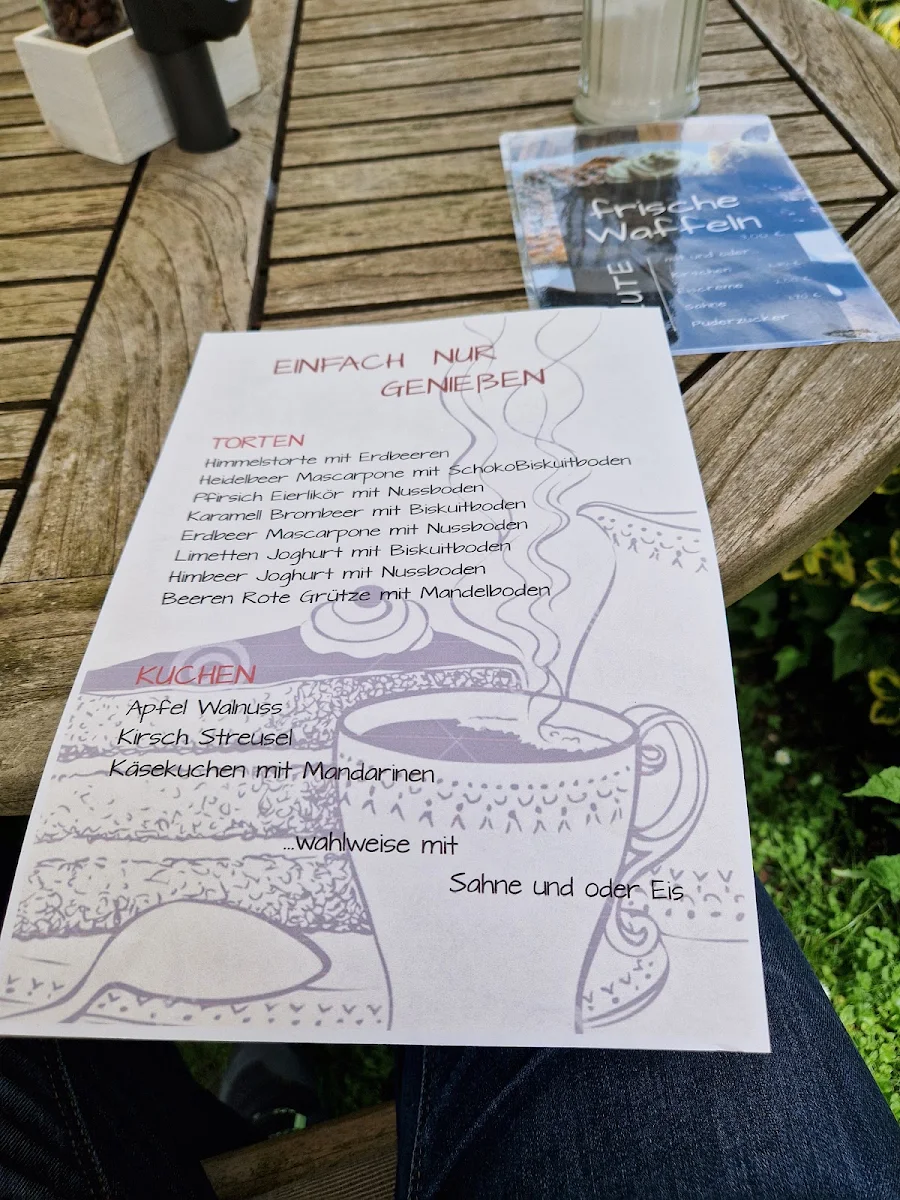 frische
Waffeln
und oder
Sahne
Puderzucker
EINFACH NUR
GENIEßEN
TORTEN
Himmelstorte mit Erdbeeren
Heidelbeer Mascarpone mit SchokoBiskuitboden
Pfirsich Eierlikör mit Nussboden
Karamell Brombeer mit Biskuitboden
Erdbeer Mascarpone mit Nussboden
Limetten Joghurt mit Biskuitboden
Himbeer Joghurt mit Nussboden
Beeren Rote Grütze mit Mandelboden
KUCHEN
Apfel Walnuss
Kirsch Streusel
Käsekuchen mit Mandarinen
...wahlweise mit
Sahne und oder Eis